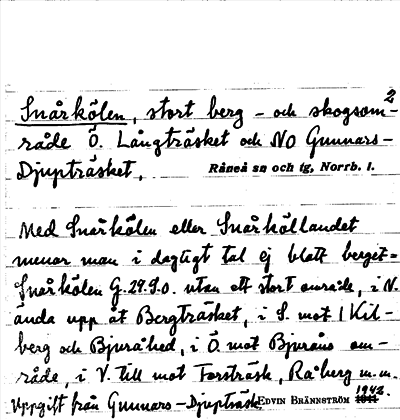 2
Snårkölen, stort berg- och skogsom-
råde Ö. Långträsket och NO Gunnars-
Djupträsket.
Råneå sn och tg, Norrb. l.
Med Snårkölen eller Snårköllandet
menar man i dagligt tal ej blott berget=
Snårkölen G.29.9.0. utan ett stort område, i N.
ända upp åt Bergträsket, i S. mot Kil-
berg och Bjuråhed, i Ö. mot Bjuråns om-
råde, i V. till mot Forsträsk, Råberg m.m.
Uppgift från Gunnars-Djupträsk.
EDVIN BRÄNNSTRÖM 1942